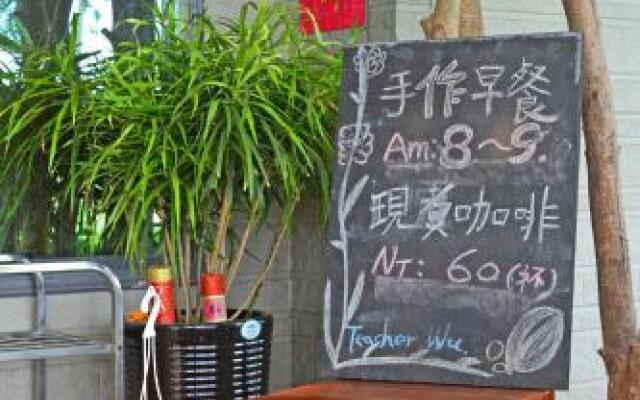 手作早餐
Am:8~9.
現煮咖啡
NT: 60(杯)
Teacher Wu.